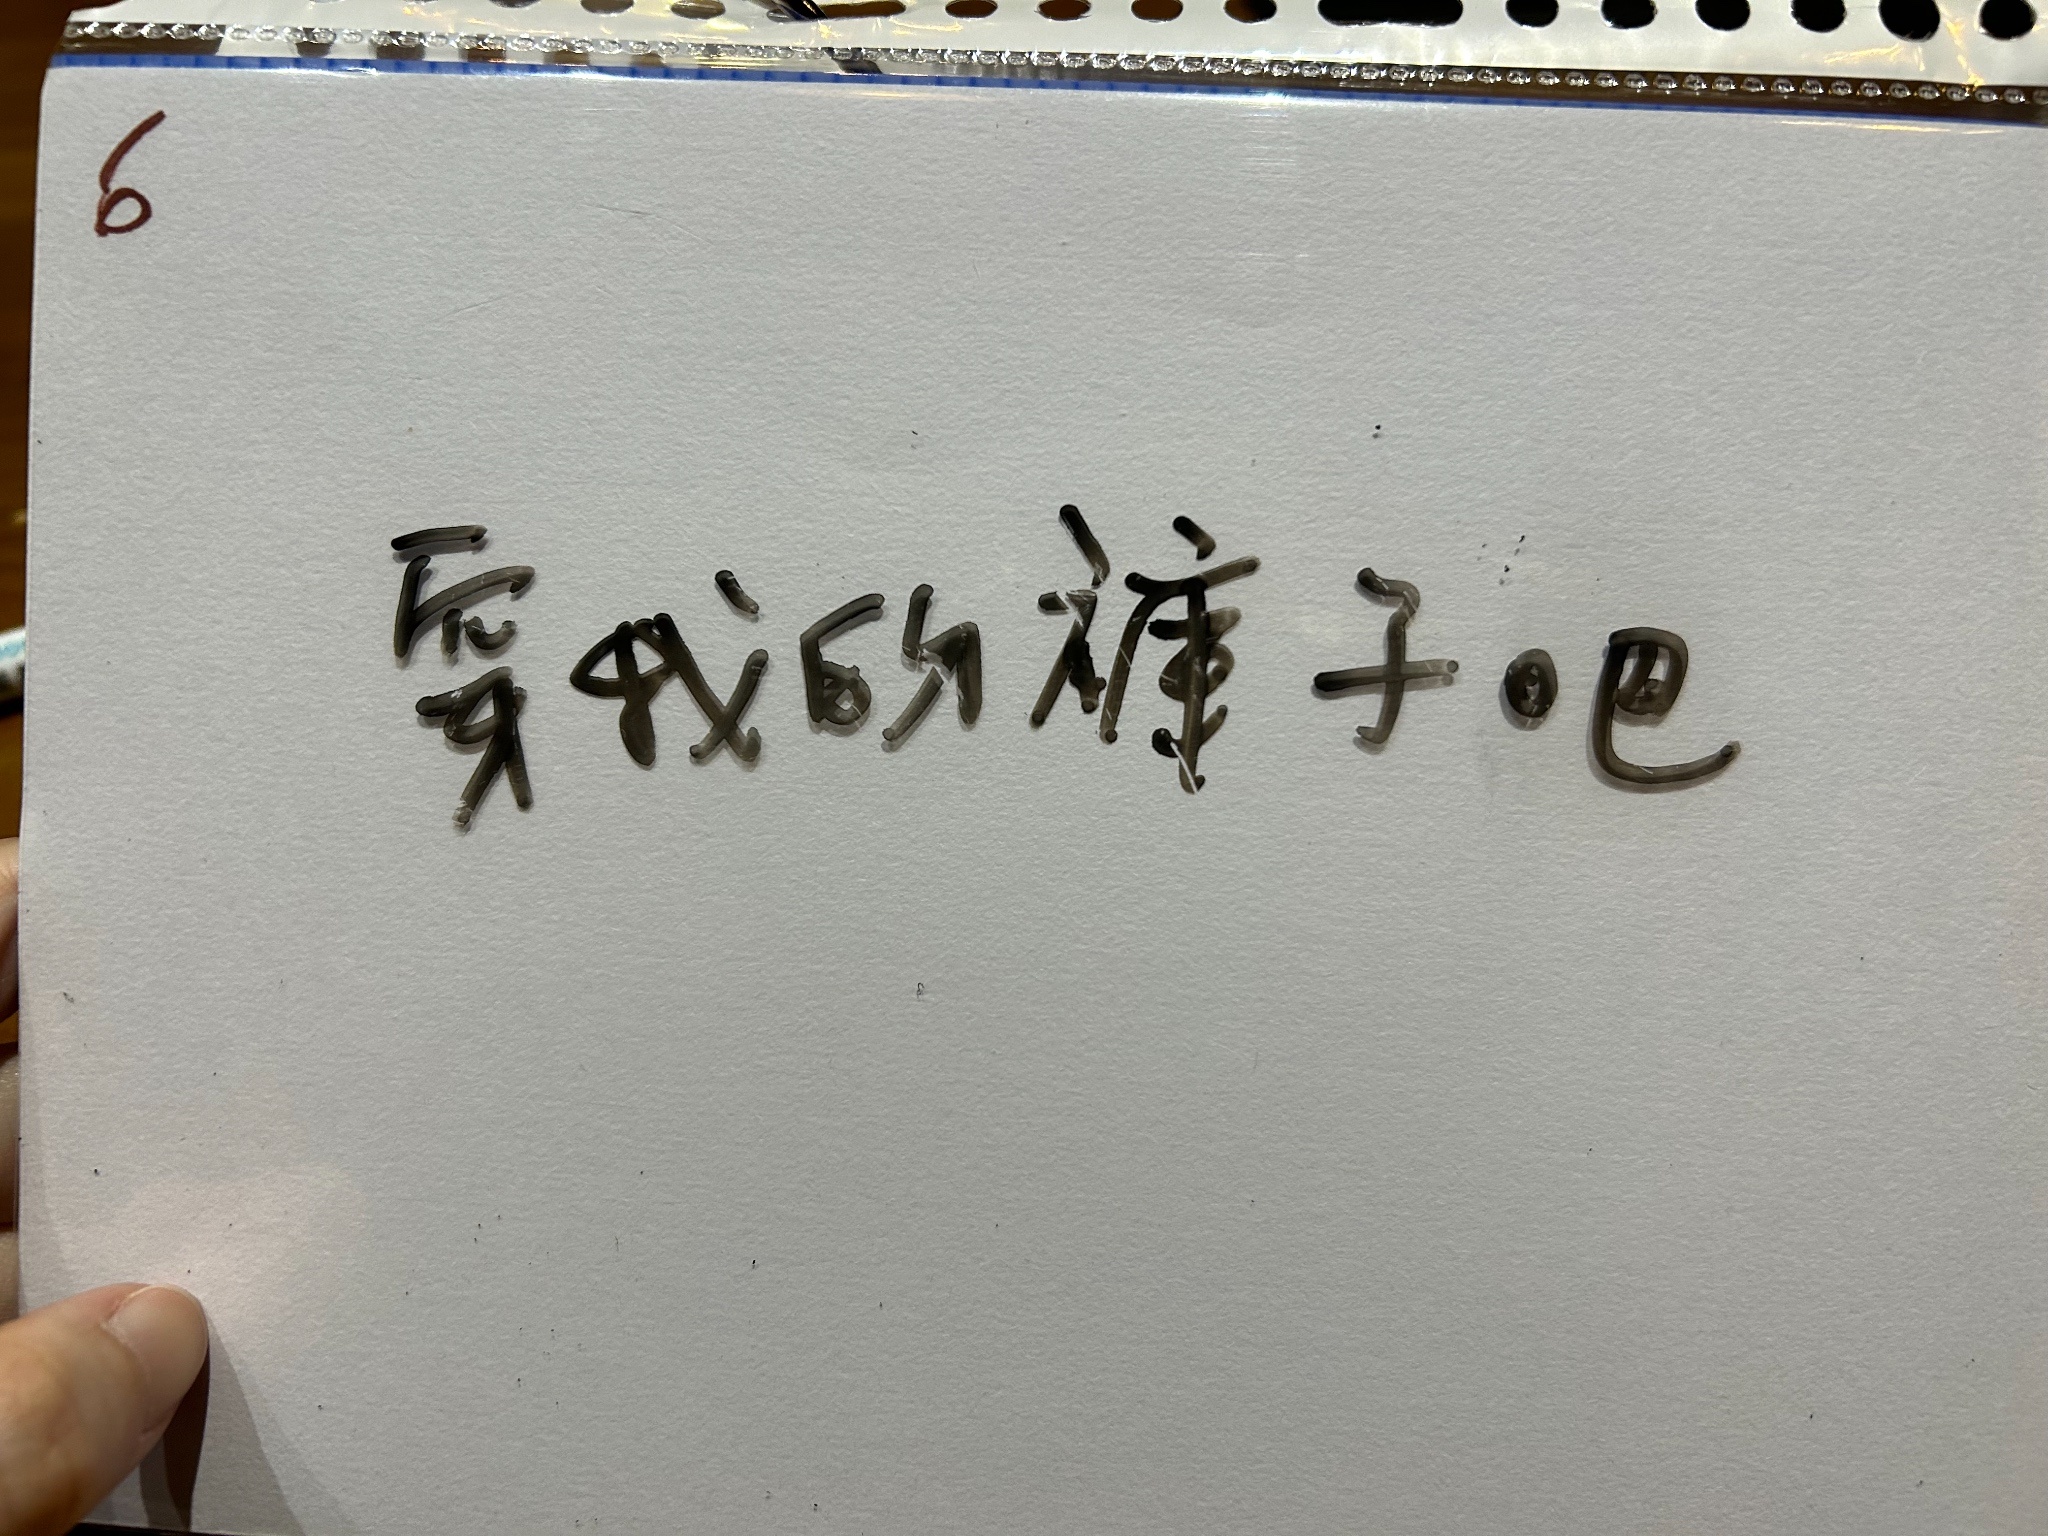 6
穿我的褲子吧